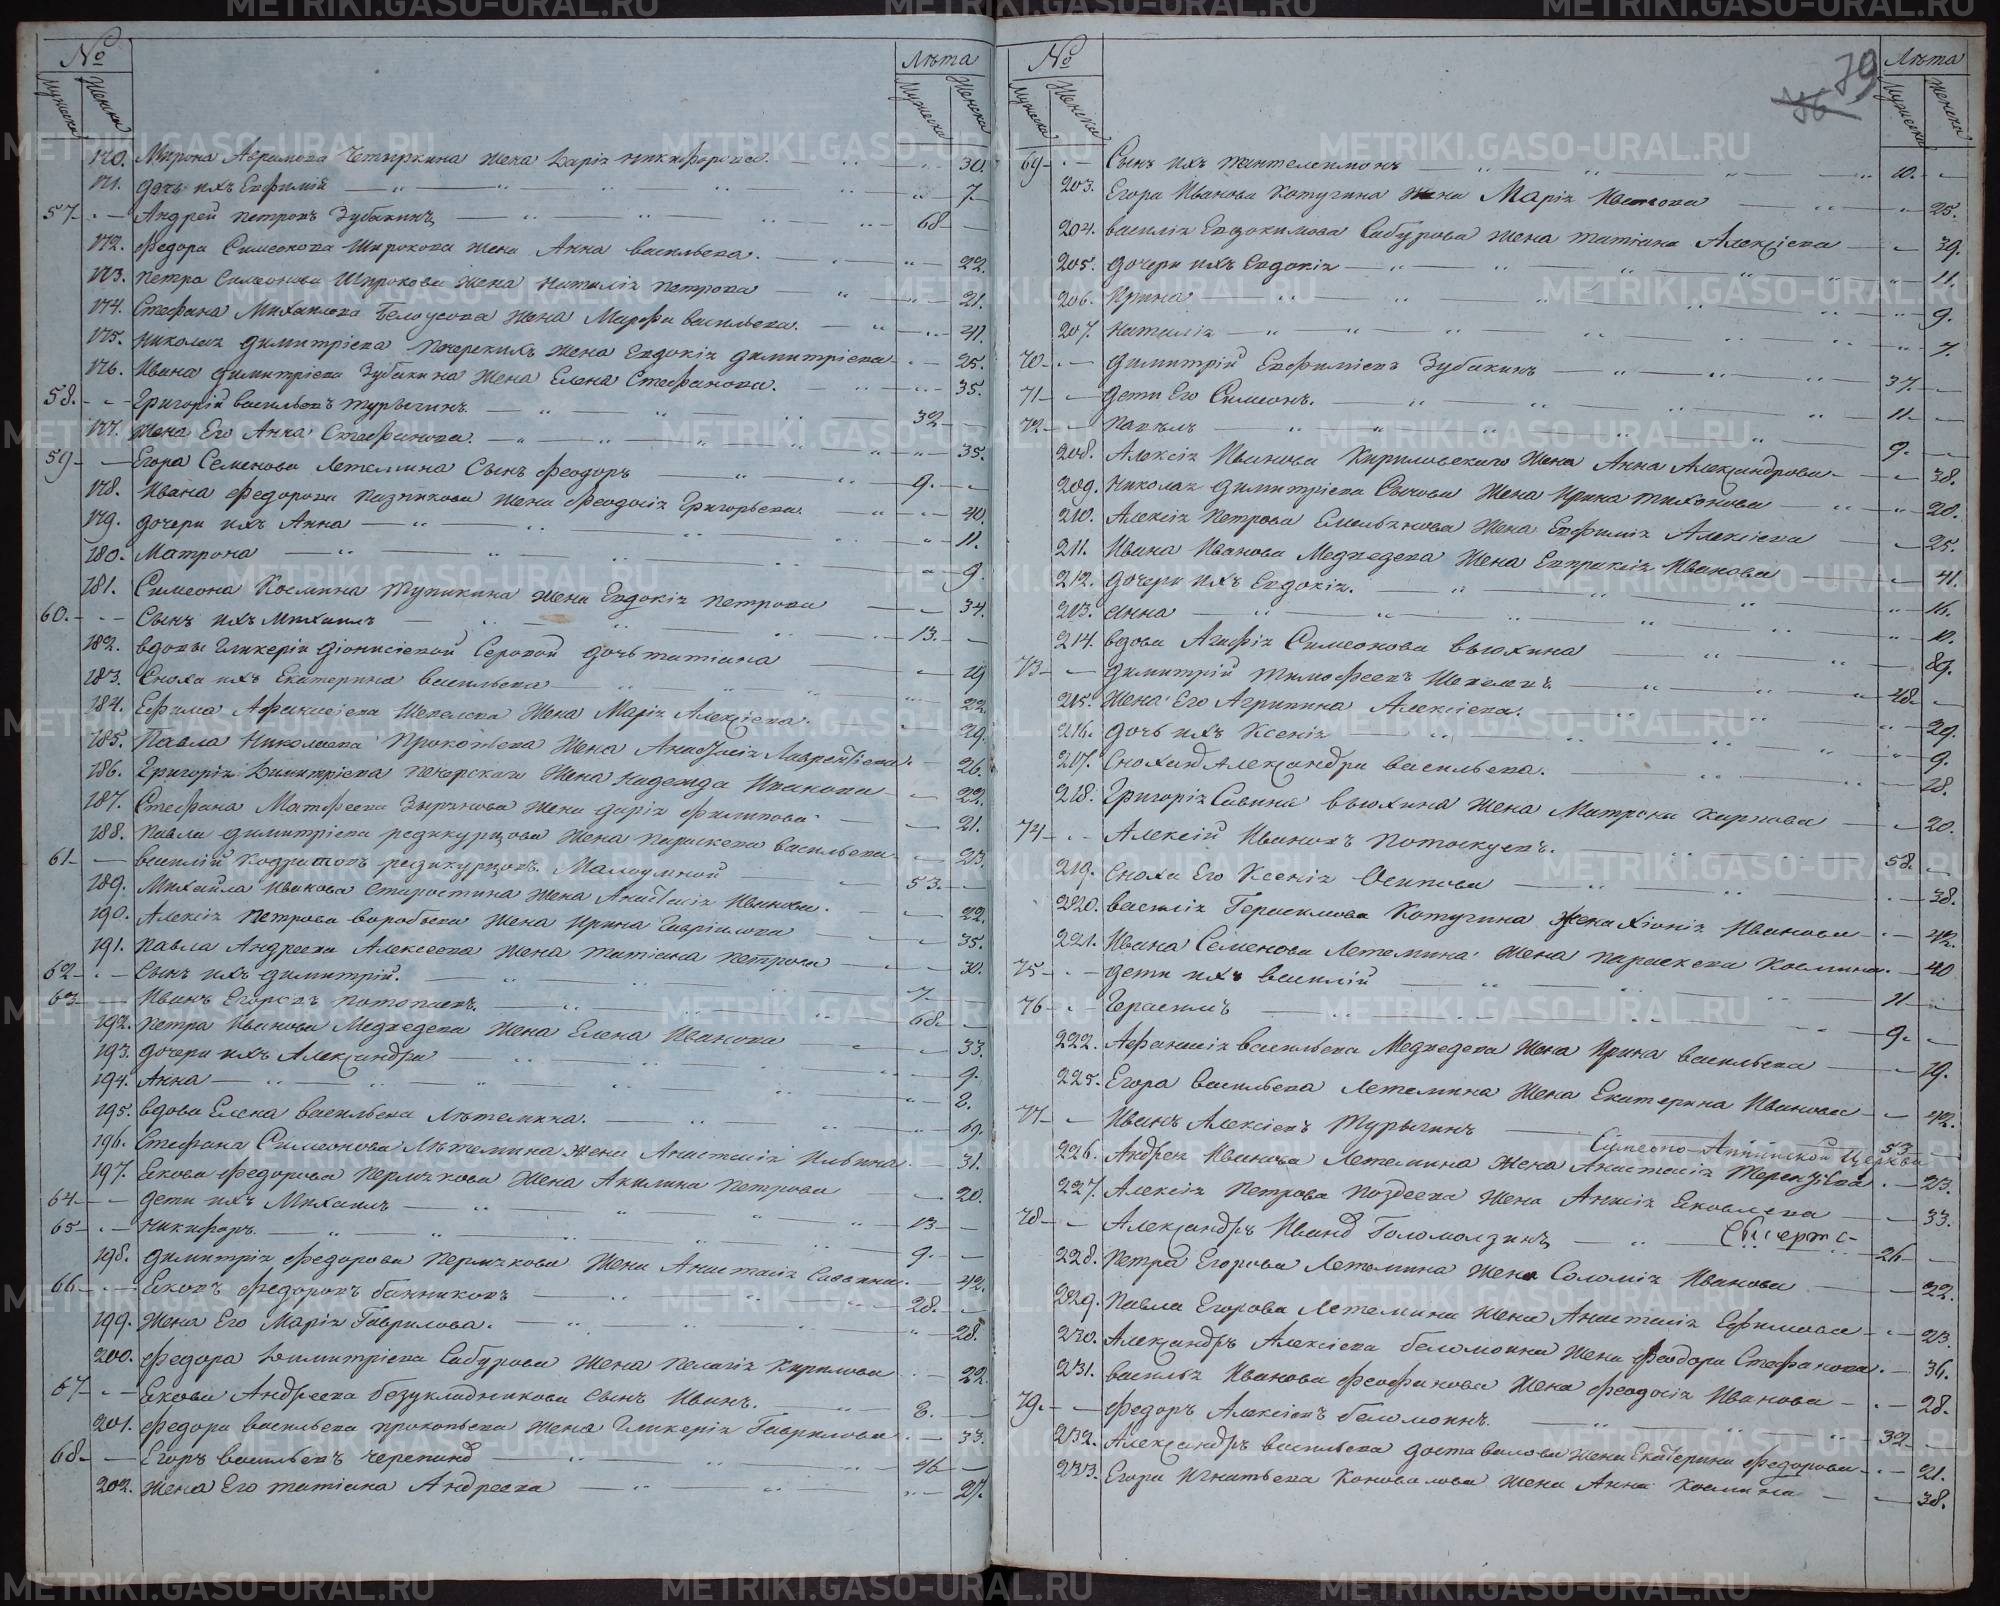 №
Мужеска Женска
Лѣта
Мужеска Женска
170. Мирона Абрамова Четыркина жена Дарія Никифорова. 30.
171. дочь ихъ Евфимія 7.
57 Андрей Петровъ Зубакинъ 68
172. Федора Симеонова Широкова жена Анна Васильева. 22.
173. Петра Симеонова Широкова жена Наталія Петрова 21.
174. Стефана Михайлова Белоусова жена Марфа Васильева. 41.
175. Николая Димитріева Печерскихъ жена Евдокія Димитріева 25.
176. Ивана Димитріева Зубакина жена Елена Стефанова. 35.
58. Григорій Васильевъ Турыгинъ. 32
177. Жена Его Анна Стефанова. 35.
59 Егора Семенова Летемина Сынъ Феодоръ 9.
178. Ивана Федорова Казникова жена Феодосія Григорьева. 40.
179. дочери ихъ Анна 11.
180. Матрона 9.
181. Симеона Космина Тупикина жена Евдокія Петрова 34.
60. Сынъ ихъ Михаилъ 13.
182. вдовы Гликеріи Діонисіевой Серовой дочь Татіана 19
183. Сноха ихъ Екатерина Васильева 22
184. Ефима Афанасіева Шевелева Жена Марія Алексіева. 29.
185. Павла Николаева Прокопьева Жена Анастасія Лаврентіева. 26.
186. Григорія Димитріева Печерскаго Жена Надежда Иванова 22.
187. Стефана Матфеева Зырянова жена Дарія Филипова 21.
188. Павла Димитріева Редикурцова Жена Параскева Васильева 23.
61 Василій Кодратовъ Редикурцовъ. Малоумной 53.
189. Михайла Иванова Старостина Жена Анастасія Иванова. 22.
190. Алексія Петрова Воробьева Жена Ирина Гавріилова 35.
191. Павла Андреева Алексеева жена Татіана Петрова 30.
62 Сынъ ихъ Димитрій. 7
63 Иванъ Егоровъ Потопаевъ. 68.
192. Петра Иванова Медведева Жена Елена Иванова 33.
193. дочери ихъ Александра 9.
194. Анна 2.
195. вдова Елена Васильева Лѣтемина. 69.
196. Стефана Симеонова Лѣтемина Жена Анастасія Ильина. 31.
197. Екова Федорова Пермякова Жена Акилина Петрова 20.
64 дети ихъ Михаилъ 13
65 Никифоръ. 9.
198. Димитрія Федорова Пермякова Жена Анастасія Саввина. 42.
66 Ековъ Федоровъ Банниковъ 28.
199. Жена Его Марія Гаврилова. 28.
200. Федора Димитріева Сабурова Жена Пелагія Кирилова 22
67 Екова Андреева Безукладникова Сынъ Иванъ. 8.
201. Федора Васильева Прокопьева Жена Гликерія Гаврилова 33.
68 Егоръ Васильевъ Черепанд 46
202. Жена Его Татіана Андреева 27.
79
76
№
Мужеска Женска
Лѣта
Мужеска Женска
69 Сынъ ихъ Пантелеимонъ 10.
203. Егора Иванова Котугина Жена Марія Иванова 25.
204. Василія Евдокимова Сабурова Жена Татіана Алексіева 39.
205. дочери ихъ Евдокія 11.
206. Ирина 9.
207. Наталія 7.
70 Димитрій Евфиміевъ Зубакинъ 37.
71 Дети Его Симеонъ. 11
72 Павелъ 9.
208. Алексія Иванова Кириловскаго Жена Анна Александрова 38.
209. Николая Димитріева Сычова Жена Ирина Тихонова 20.
210. Алексія Петрова Емельянова Жена Евфимія Алексіева 25.
211. Ивана Иванова Медведева Жена Евпраксія Иванова 41.
212. дочери ихъ Евдокія. 16.
213. Анна 10.
214. вдова Агафія Симеонова Вьюхина 89.
73 Димитрій Тимофеевъ Шевелевъ 48.
215. Жена Его Агрипина Алексіева. 29.
216. дочь ихъ Ксенія 9.
217. Сноха Александра Васильева. 28.
218. Григорія Савина Вьюхина Жена Матрона Карпова 20.
74 Алексій Ивановъ Потоскуевъ. 58.
219. Сноха Его Ксенія Осипова 38.
220. Василія Герасимова Котугина Жена Хіонія Иванова 42.
221. Ивана Семенова Летемина Жена Параскева Космина. 40
75 дети ихъ Василій 11
76 Герасимъ 9.
222. Афанасія Васильева Медведева Жена Ирина Васильева 19.
225. Егора Васильева Летемина Жена Екатерина Иванова 42.
77 Иванъ Алексіевъ Турыгинъ 53
Симеоно-Аннинской Церкви
226. Андрея Иванова Летемина Жена Анастасія Терентіева 23.
227. Алексія Петрова Поздеева Жена Анисія Ековлева 33.
78 Александръ Иванд Голомолзинъ 26
228. Петра Егорова Летемина Жена Соломія Иванова 22.
229. Павла Егорова Летемина Жена Анастасія Ефимова 23.
230. Александръ Алексіева Беломоина Жена Феодора Стефанова. 36.
231. Василья Иванова Феофанова Жена Феодосія Иванова 28.
79. Федоръ Алексіевъ Беломоинъ. 32
232. Александръ Васильева Доставалова Жена Екатерина Федорова 21.
233. Егора Игнатьева Коновалова Жена Анна Космина 38.
METRIKI.GASO-URAL.RU